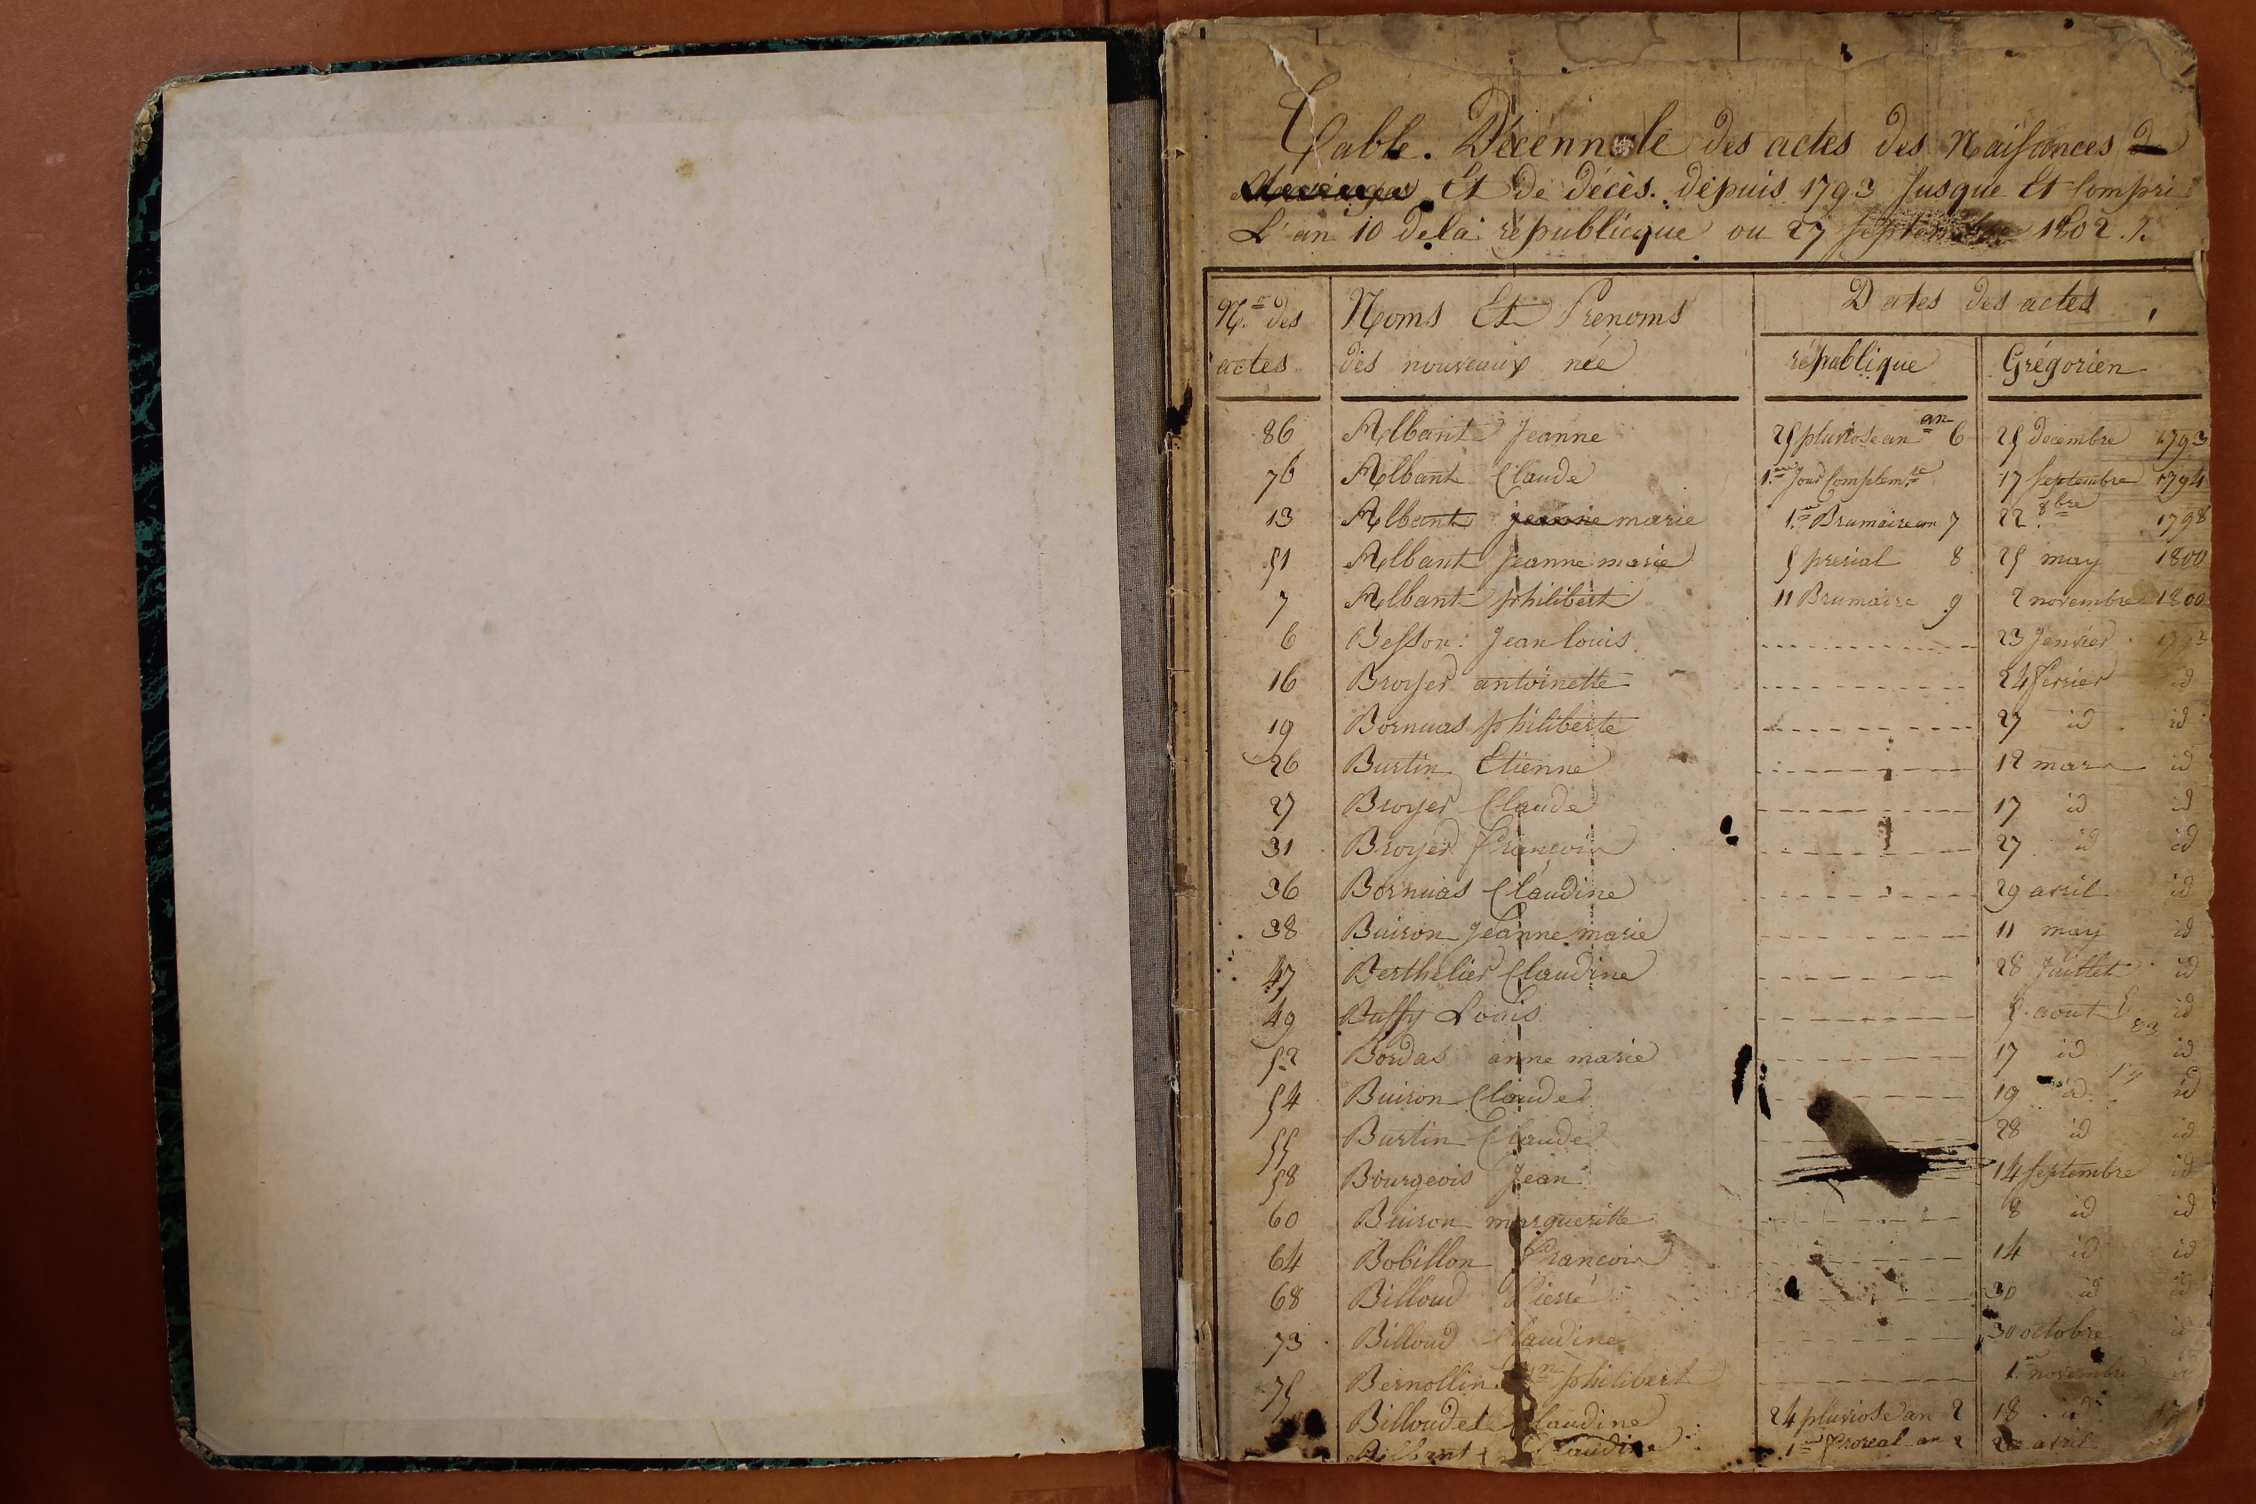 Table. Décennale des actes des Naissances de
Mariages Et de décès. depuis 1793 Jusque Et Compri
L'an 10 de la républicque ou 27 septembre 1802 ./.
N.o des Noms Et Prenoms Dates des actes
actes des nouveaux née république Grégorien
86 Albant Jeanne 25 pluviose an an 6 25 decembre 1793
76 Albant Claude 1.er Jour Complem.re 17 septembre 1794
13 Albant jeanne marie 1.er Brumaire an 7 22 8bre 1798
51 Albant Jeanne marie 5 prerial 8 25 may 1800
7 Albant philibert 11 Brumaire 9 2 novembre 1800
6 Besson: Jean Louis 23 Janvier 1793
16 Broyer antoinette 24 fevrier id
19 Bornuas philiberte 27 id id
26 Burtin Etienne 12 mars id
27 Broyer Claude 17 id id
31 Broyer François 27 id id
36 Bornuas Claudine 29 avril id
38 Buiron Jeanne marie 11 may id
47 Berthelier Claudine 28 Juillet id
49 Buffy Louis 5 aout id
52 Bordas anne marie 17 id id
54 Buiron Claude 19 id id
55 Burtin Claude 28 id id
58 Bourgeois Jean 14 septembre id
60 Buiron marguerite 8 id id
64 Bobillon François 14 id id
68 Billoud Pierre 30 id id
73 Billoud Claudine 30 octobre id
75 Bernollin philibert 1.er novembre id
Billoudet Claudine 24 pluviose an 2 18 id
Albant Claudine 1.er floreal an 2 20 avril